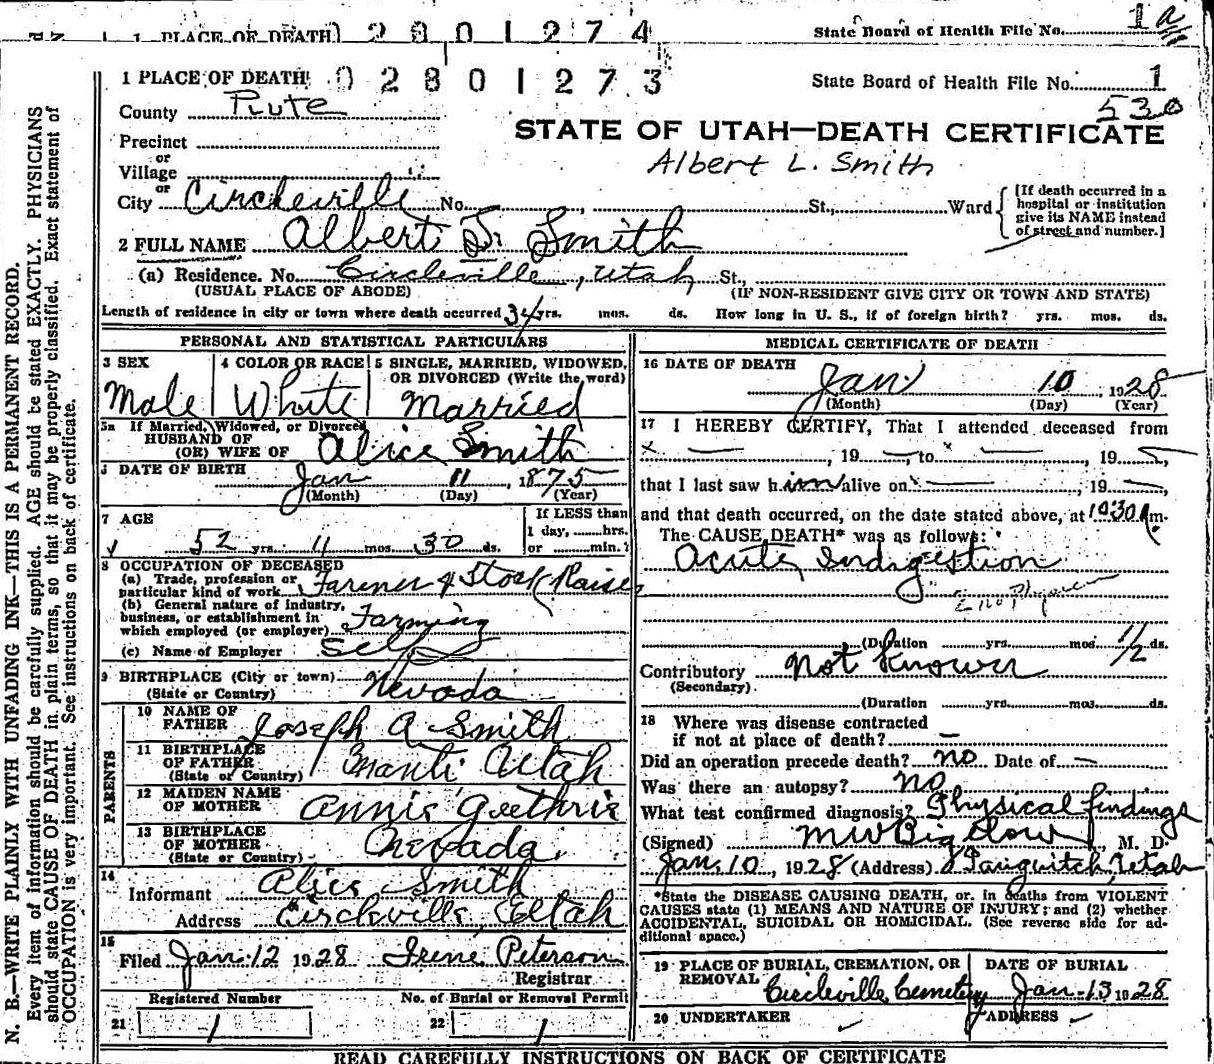 1 PLACE OF DEATH 2801274 State Board of Health File No. 1a
1 PLACE OF DEATH 02801273 State Board of Health File No. 1
County Piute 530
STATE OF UTAH—DEATH CERTIFICATE
Precinct
or
Village
or
Albert L. Smith
City Circleville No. , St., Ward
[If death occurred in a
hospital or institution
give its NAME instead
of street and number.]
2 FULL NAME Albert Smith
(a) Residence. No. Circleville, Utah St.,
(USUAL PLACE OF ABODE) (IF NON-RESIDENT GIVE CITY OR TOWN AND STATE)
Length of residence in city or town where death occurred 34 yrs. mos. ds. How long in U. S., if of foreign birth? yrs. mos. ds.
PERSONAL AND STATISTICAL PARTICULARS
3 SEX
Male
4 COLOR OR RACE
White
5 SINGLE, MARRIED, WIDOWED,
OR DIVORCED (Write the word)
Married
5a If Married, Widowed, or Divorced
HUSBAND OF
(OR) WIFE OF Alice Smith
DATE OF BIRTH
Jan 11, 1875
(Month) (Day) (Year)
7 AGE
52 yrs. 11 mos. 30 ds.
If LESS than
1 day, hrs.
or min.?
8 OCCUPATION OF DECEASED
(a) Trade, profession or
particular kind of work Farmer & Stock Raiser
(b) General nature of industry,
business, or establishment in
which employed (or employer) Farming
(c) Name of Employer Self
9 BIRTHPLACE (City or town)
(State or Country) Nevada
PARENTS
10 NAME OF
FATHER Joseph A Smith
11 BIRTHPLACE
OF FATHER
(State or Country) Manti Utah
12 MAIDEN NAME
OF MOTHER Annie Guthrie
13 BIRTHPLACE
OF MOTHER
(State or Country) Nevada
14
Informant Alice Smith
Address Circleville, Utah
15
Filed Jan. 12 1928 Irene Peterson
Registrar
Registered Number No. of Burial or Removal Permit
21 1 22 1
MEDICAL CERTIFICATE OF DEATH
16 DATE OF DEATH
Jan 10, 1928
(Month) (Day) (Year)
17 I HEREBY CERTIFY, That I attended deceased from
x — , 19 — to — , 19 —
that I last saw him alive on — , 19 —
and that death occurred, on the date stated above, at 10 30 Am.
The CAUSE DEATH* was as follows:
Acute Indigestion
(Duration yrs. mos. 1/2 ds.
Contributory Not Known
(Secondary)
(Duration yrs. mos. ds.
18 Where was disease contracted
if not at place of death? —
Did an operation precede death? no Date of —
Was there an autopsy? no
What test confirmed diagnosis? Physical findings
(Signed) M W Bigelow, M. D.
Jan. 10, 1928 (Address) Panguitch, Utah
*State the DISEASE CAUSING DEATH, or, in deaths from VIOLENT
CAUSES state (1) MEANS AND NATURE OF INJURY; and (2) whether
ACCIDENTAL, SUICIDAL OR HOMICIDAL. (See reverse side for ad-
ditional space.)
19 PLACE OF BURIAL, CREMATION, OR
REMOVAL
Circleville Cemetery
DATE OF BURIAL
Jan. 13 1928
20 UNDERTAKER ADDRESS
READ CAREFULLY INSTRUCTIONS ON BACK OF CERTIFICATE
N. B.—WRITE PLAINLY WITH UNFADING INK—THIS IS A PERMANENT RECORD.
Every item of information should be carefully supplied. AGE should be stated EXACTLY. PHYSICIANS
should state CAUSE OF DEATH in plain terms, so that it may be properly classified. Exact statement of
OCCUPATION is very important. See instructions on back of certificate.